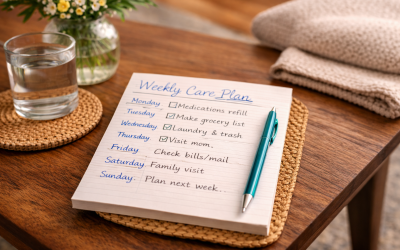 Weekly Care Plan
Monday ☑Medications refill
Tuesday ☑Make grocery list
Wednesday ☑Laundry & trash
Thursday ☑Visit mom.
Friday Check bills/mail
Saturday Family visit
Sunday. Plan next week..